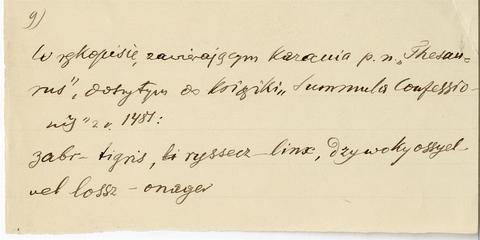 9)
W rękopisie, zawierającym kazania p. n. „Thesau=
rus", doszytym do książki „Summula Confessio-
nis" z r. 1481:
zabr – tigris, li ryssecz – linx, dzywokyossyel
vel lossz – onager